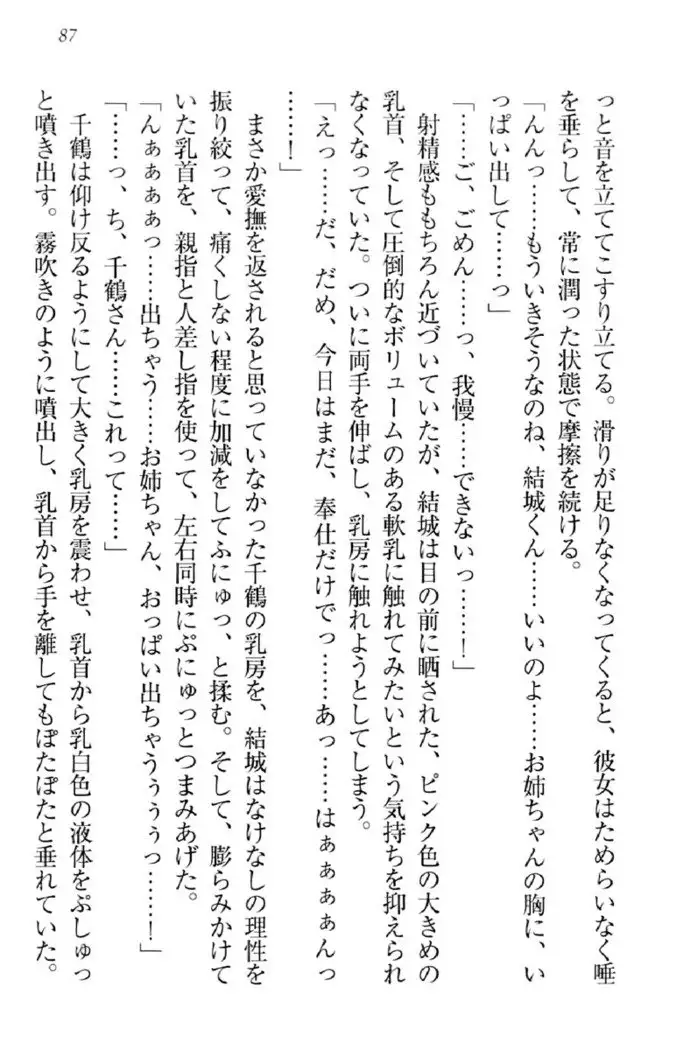 87
っと音を立ててこすり立てる。滑りが足りなくなってくると、彼女はためらいなく唾
を垂らして、常に潤った状態で摩擦を続ける。
「んんっ……もういきそうなのね、結城くん……いいのよ……お姉ちゃんの胸に、い
っぱい出して……っ」
「……ご、ごめん……っ、我慢……できないっ……！」
射精感ももちろん近づいていたが、結城は目の前に晒された、ピンク色の大きめの
乳首、そして圧倒的なボリュームのある軟乳に触れてみたいという気持ちを抑えられ
なくなっていた。ついに両手を伸ばし、乳房に触れようとしてしまう。
「えっ……だ、だめ、今日はまだ、奉仕だけでっ……あっ……はぁぁぁぁんっ
……！」
まさか愛撫を返されると思っていなかった千鶴の乳房を、結城はなけなしの理性を
振り絞って、痛くしない程度に加減をしてふにゅっ、と揉む。そして、膨らみかけて
いた乳首を、親指と人差し指を使って、左右同時にぷにゅっとつまみあげた。
「んぁぁぁぁっ……出ちゃう……お姉ちゃん、おっぱい出ちゃうぅぅぅっ……！」
「……っ、ち、千鶴さん……これって……」
千鶴は仰け反るようにして大きく乳房を震わせ、乳首から乳白色の液体をぷしゅっ
と噴き出す。霧吹きのように噴出し、乳首から手を離してもぽたぽたと垂れていた。